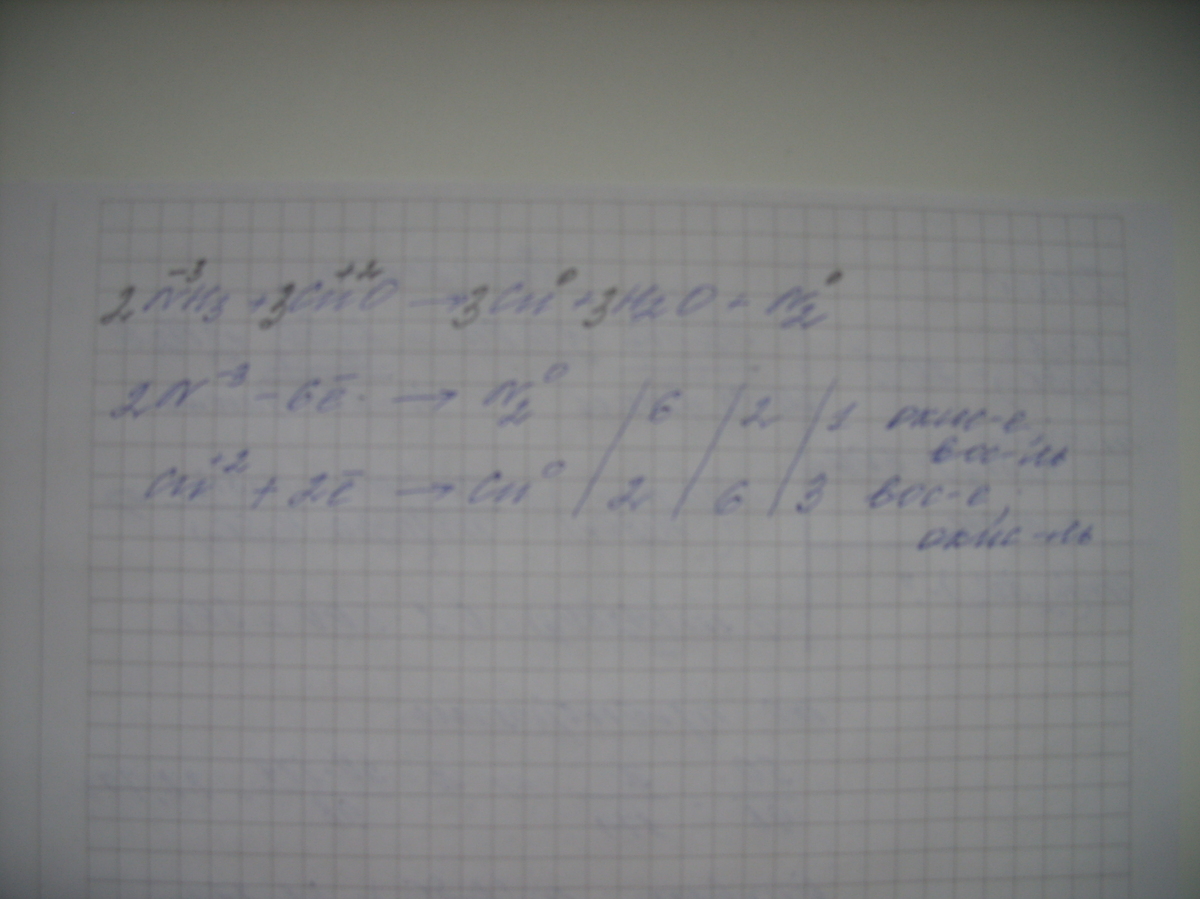 2N⁻³H₃ + 3Cu⁺²O → 3Cu⁰ + 3H₂O + N₂⁰
2N⁻³ - 6ē → N₂⁰ / 6 / 2 / 1 окис-е,
вос-ль
Cu⁺² + 2ē → Cu⁰ / 2 / 6 / 3 вос-е,
окис-ль